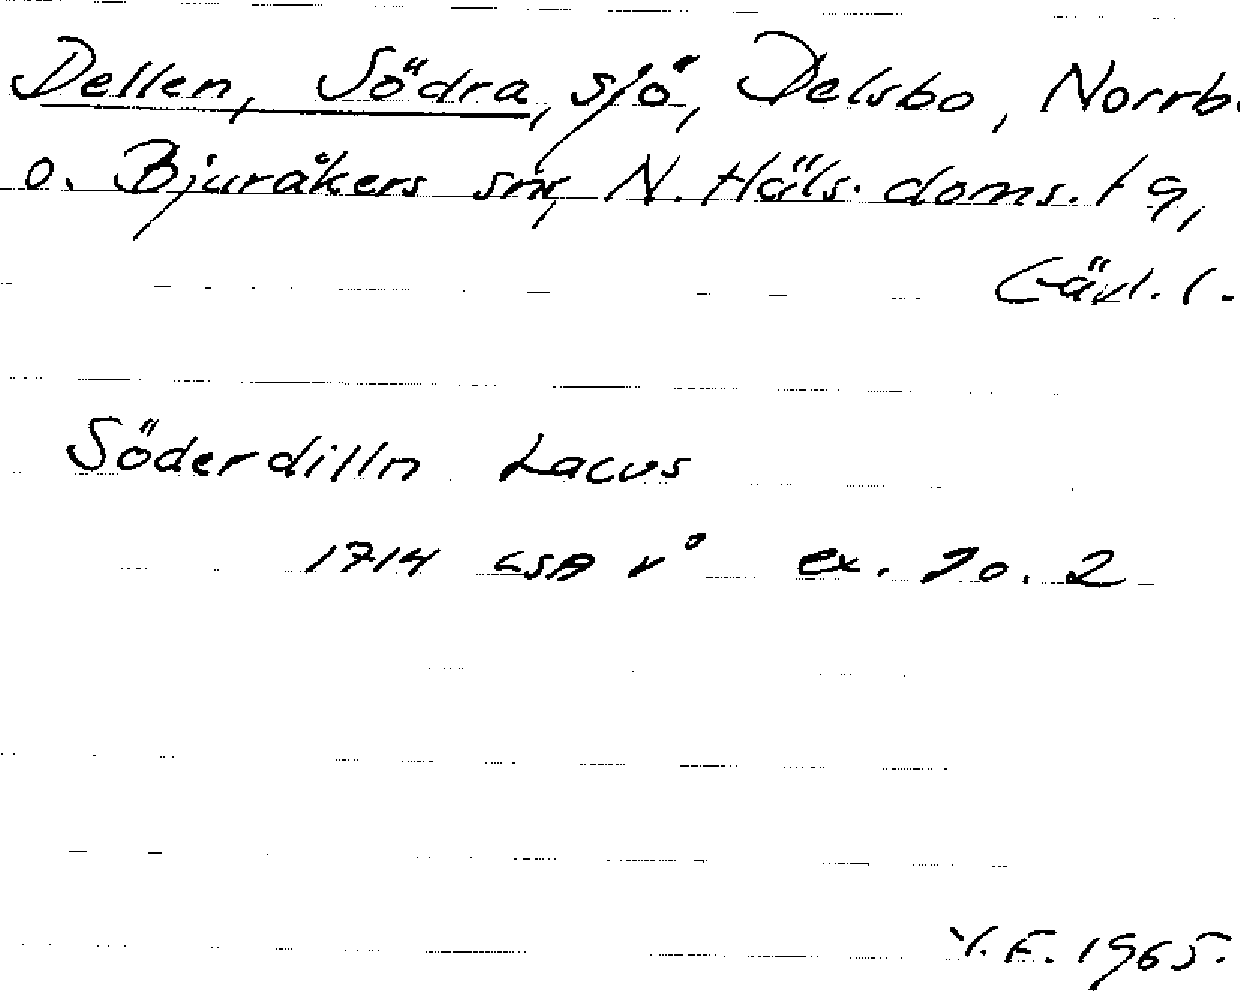 Dellen, Södra, sjö, Delsbo, Norrb.
o. Bjuråkers snr, N. Häls. doms. tg,
Gävl. l.
Söderdilln Lacus
1714 LSA v° ex. 70. 2
V.E. 1965.